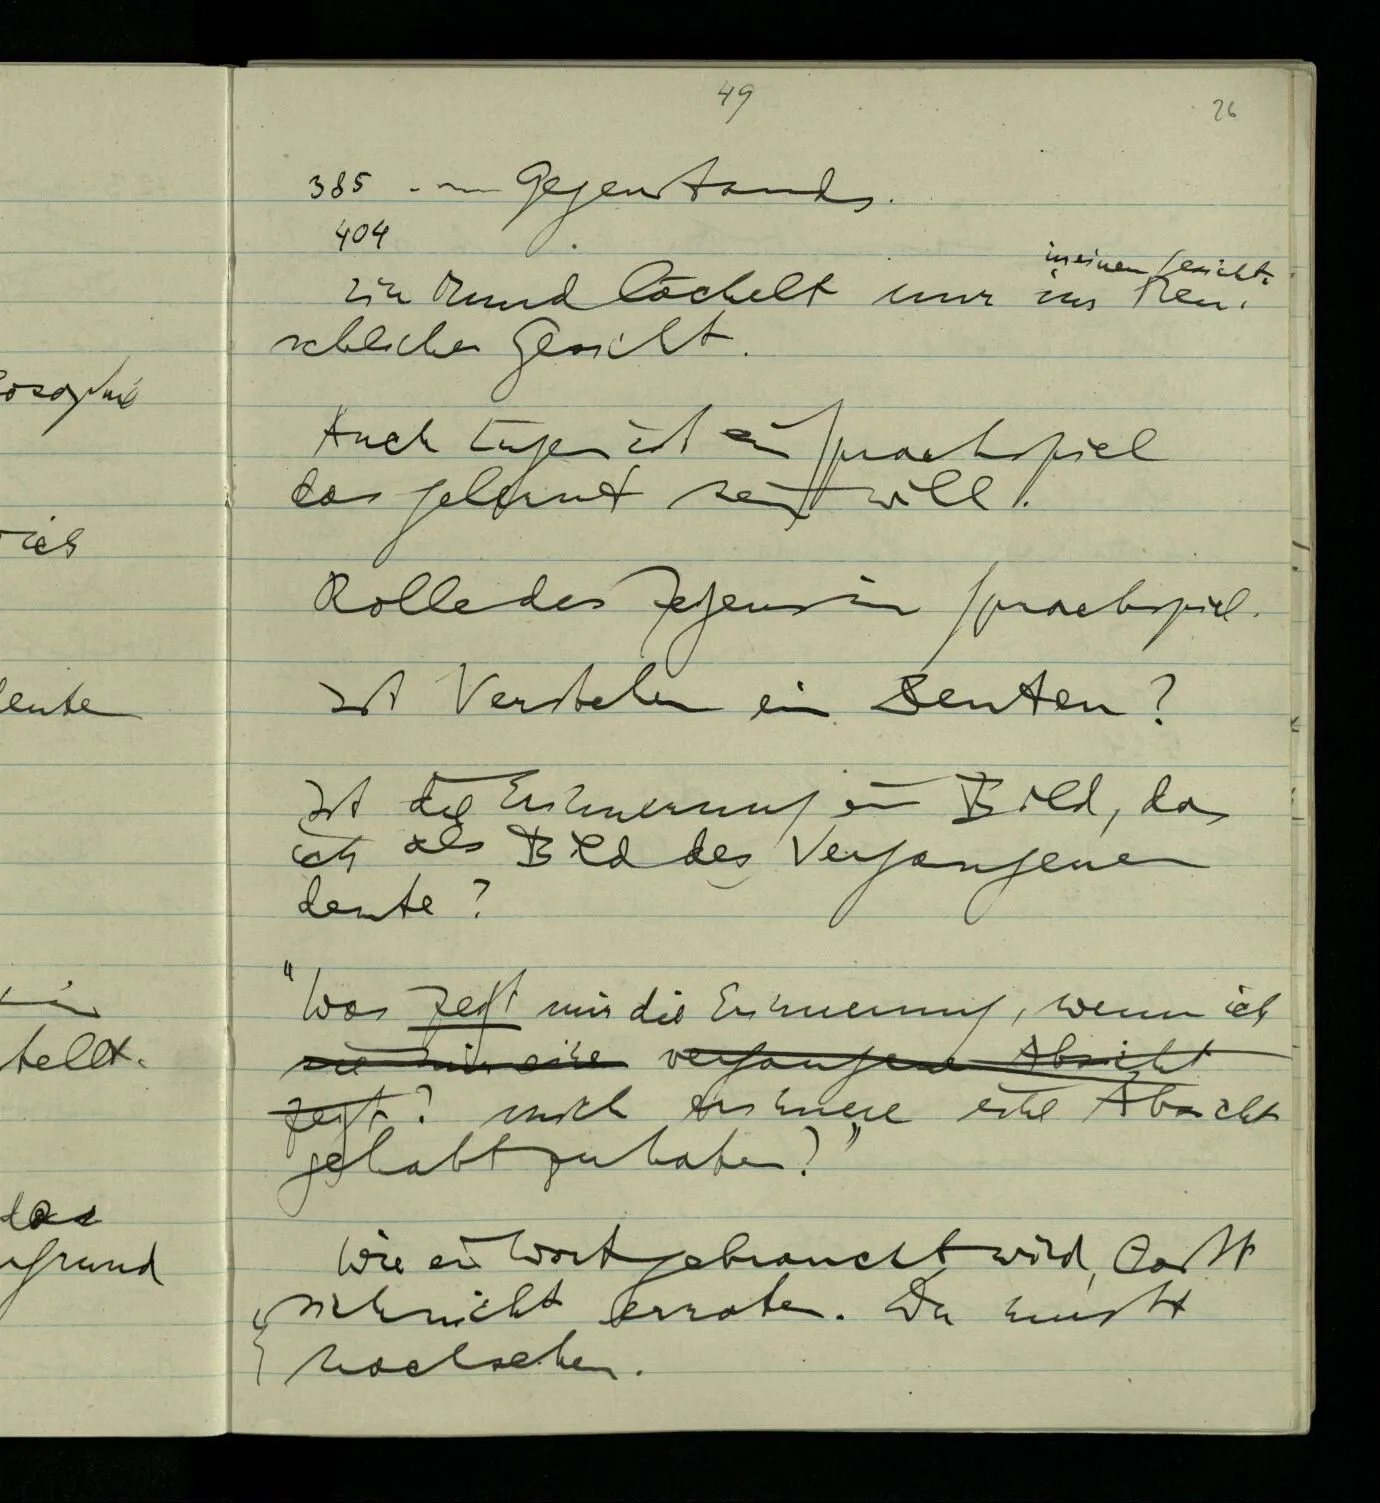 osophie
ich
deute
in
stellt.
das
grund
49
26
385 - Gegenstands.
404
in einem Gesicht.
Ein Mund lächelt nur im Men-
schlichen Gesicht.
Auch Lügen ist ein Sprachspiel
das gelernt sein will.
Rolle des Zeigens im Sprachspiel.
Ist Verstehen ein Deuten?
Ist die Erinnerung ein Bild, das
ich als Bild des Vergangenen
deute?
"Was zeigt mir die Erinnerung, wenn ich
sie mir eine vergangene Absicht
zeigt? mich erinnere eine Absicht
gehabt zu haben?"
Wie ein Wort gebraucht wird, läßt
sich nicht erraten. Du mußt
nachsehen.